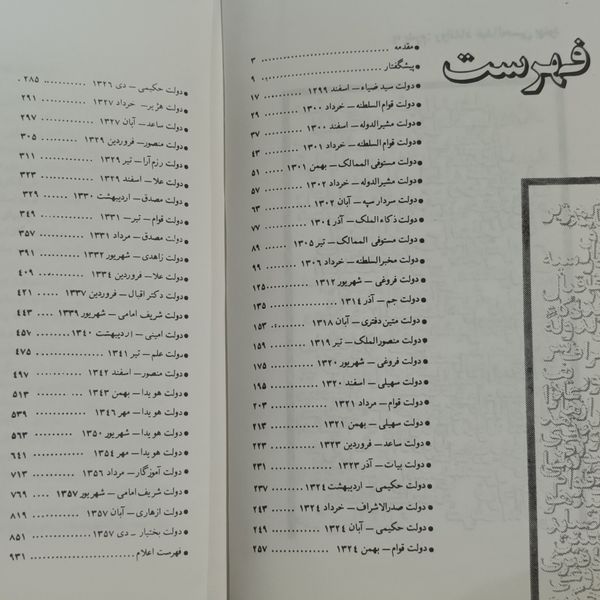 فهرست
● مقدمه ............ ۳
● پیشگفتار ............ ۹
● دولت سید ضیاء — اسفند ۱۲۹۹ ...... ۱۷
● دولت قوام السلطنه — خرداد ۱۳۰۰ ...... ۲۹
● دولت مشیرالدوله — اسفند ۱۳۰۰ ...... ۳۷
● دولت قوام السلطنه — خرداد ۱۳۰۱ ...... ۴۳
● دولت مستوفی الممالک — بهمن ۱۳۰۱ ...... ۵۱
● دولت مشیرالدوله — خرداد ۱۳۰۲ ...... ۵۷
● دولت سردار سپه — آبان ۱۳۰۲ ...... ۶۳
● دولت ذکاء الملک — آذر ۱۳۰۴ ...... ۷۷
● دولت مستوفی الممالک — تیر ۱۳۰۵ ...... ۸۹
● دولت مخبرالسلطنه — خرداد ۱۳۰۶ ...... ۹۹
● دولت فروغی — شهریور ۱۳۱۲ ...... ۱۲۵
● دولت جم — آذر ۱۳۱۴ ...... ۱۳۵
● دولت متین دفتری — آبان ۱۳۱۸ ...... ۱۵۳
● دولت منصورالملک — تیر ۱۳۱۹ ...... ۱۵۹
● دولت فروغی — شهریور ۱۳۲۰ ...... ۱۷۵
● دولت سهیلی — اسفند ۱۳۲۰ ...... ۱۹۵
● دولت قوام — مرداد ۱۳۲۱ ...... ۲۰۳
● دولت سهیلی — بهمن ۱۳۲۱ ...... ۲۱۳
● دولت ساعد — فروردین ۱۳۲۳ ...... ۲۲۳
● دولت بیات — آذر ۱۳۲۳ ...... ۲۳۱
● دولت حکیمی — اردیبهشت ۱۳۲۴ ...... ۲۳۷
● دولت صدرالاشراف — خرداد ۱۳۲۴ ...... ۲۴۳
● دولت حکیمی — آبان ۱۳۲۴ ...... ۲۴۹
● دولت قوام — بهمن ۱۳۲۴ ...... ۲۵۷
● دولت حکیمی — دی ۱۳۲۶ ...... ۲۸۵
● دولت هژیر — خرداد ۱۳۲۷ ...... ۲۹۱
● دولت ساعد — آبان ۱۳۲۷ ...... ۲۹۷
● دولت منصور — فروردین ۱۳۲۹ ...... ۳۰۵
● دولت رزم آرا — تیر ۱۳۲۹ ...... ۳۱۱
● دولت علا — اسفند ۱۳۲۹ ...... ۳۲۳
● دولت مصدق — اردیبهشت ۱۳۳۰ ...... ۳۲۹
● دولت قوام — تیر — ۱۳۳۱ ...... ۳۴۹
● دولت مصدق — مرداد ۱۳۳۱ ...... ۳۵۷
● دولت زاهدی — شهریور ۱۳۳۲ ...... ۳۹۱
● دولت علا — فروردین ۱۳۳۴ ...... ۴۰۹
● دولت دکتر اقبال — فروردین ۱۳۳۷ ...... ۴۲۱
● دولت شریف امامی — شهریور ۱۳۳۹ ...... ۴۴۳
● دولت امینی — اردیبهشت ۱۳۴۰ ...... ۴۵۷
● دولت علم — تیر ۱۳۴۱ ...... ۴۷۵
● دولت منصور — اسفند ۱۳۴۲ ...... ۴۹۷
● دولت هویدا — بهمن ۱۳۴۳ ...... ۵۱۳
● دولت هویدا — مهر ۱۳۴۶ ...... ۵۳۹
● دولت هویدا — شهریور ۱۳۵۰ ...... ۵۶۳
● دولت هویدا — مهر ۱۳۵۴ ...... ۶۴۱
● دولت آموزگار — مرداد ۱۳۵۶ ...... ۷۱۳
● دولت شریف امامی — شهریور ۱۳۵۷ ...... ۷۶۹
● دولت ازهاری — آبان ۱۳۵۷ ...... ۸۱۹
● دولت بختیار — دی ۱۳۵۷ ...... ۸۵۱
● فهرست اعلام ...... ۹۳۱